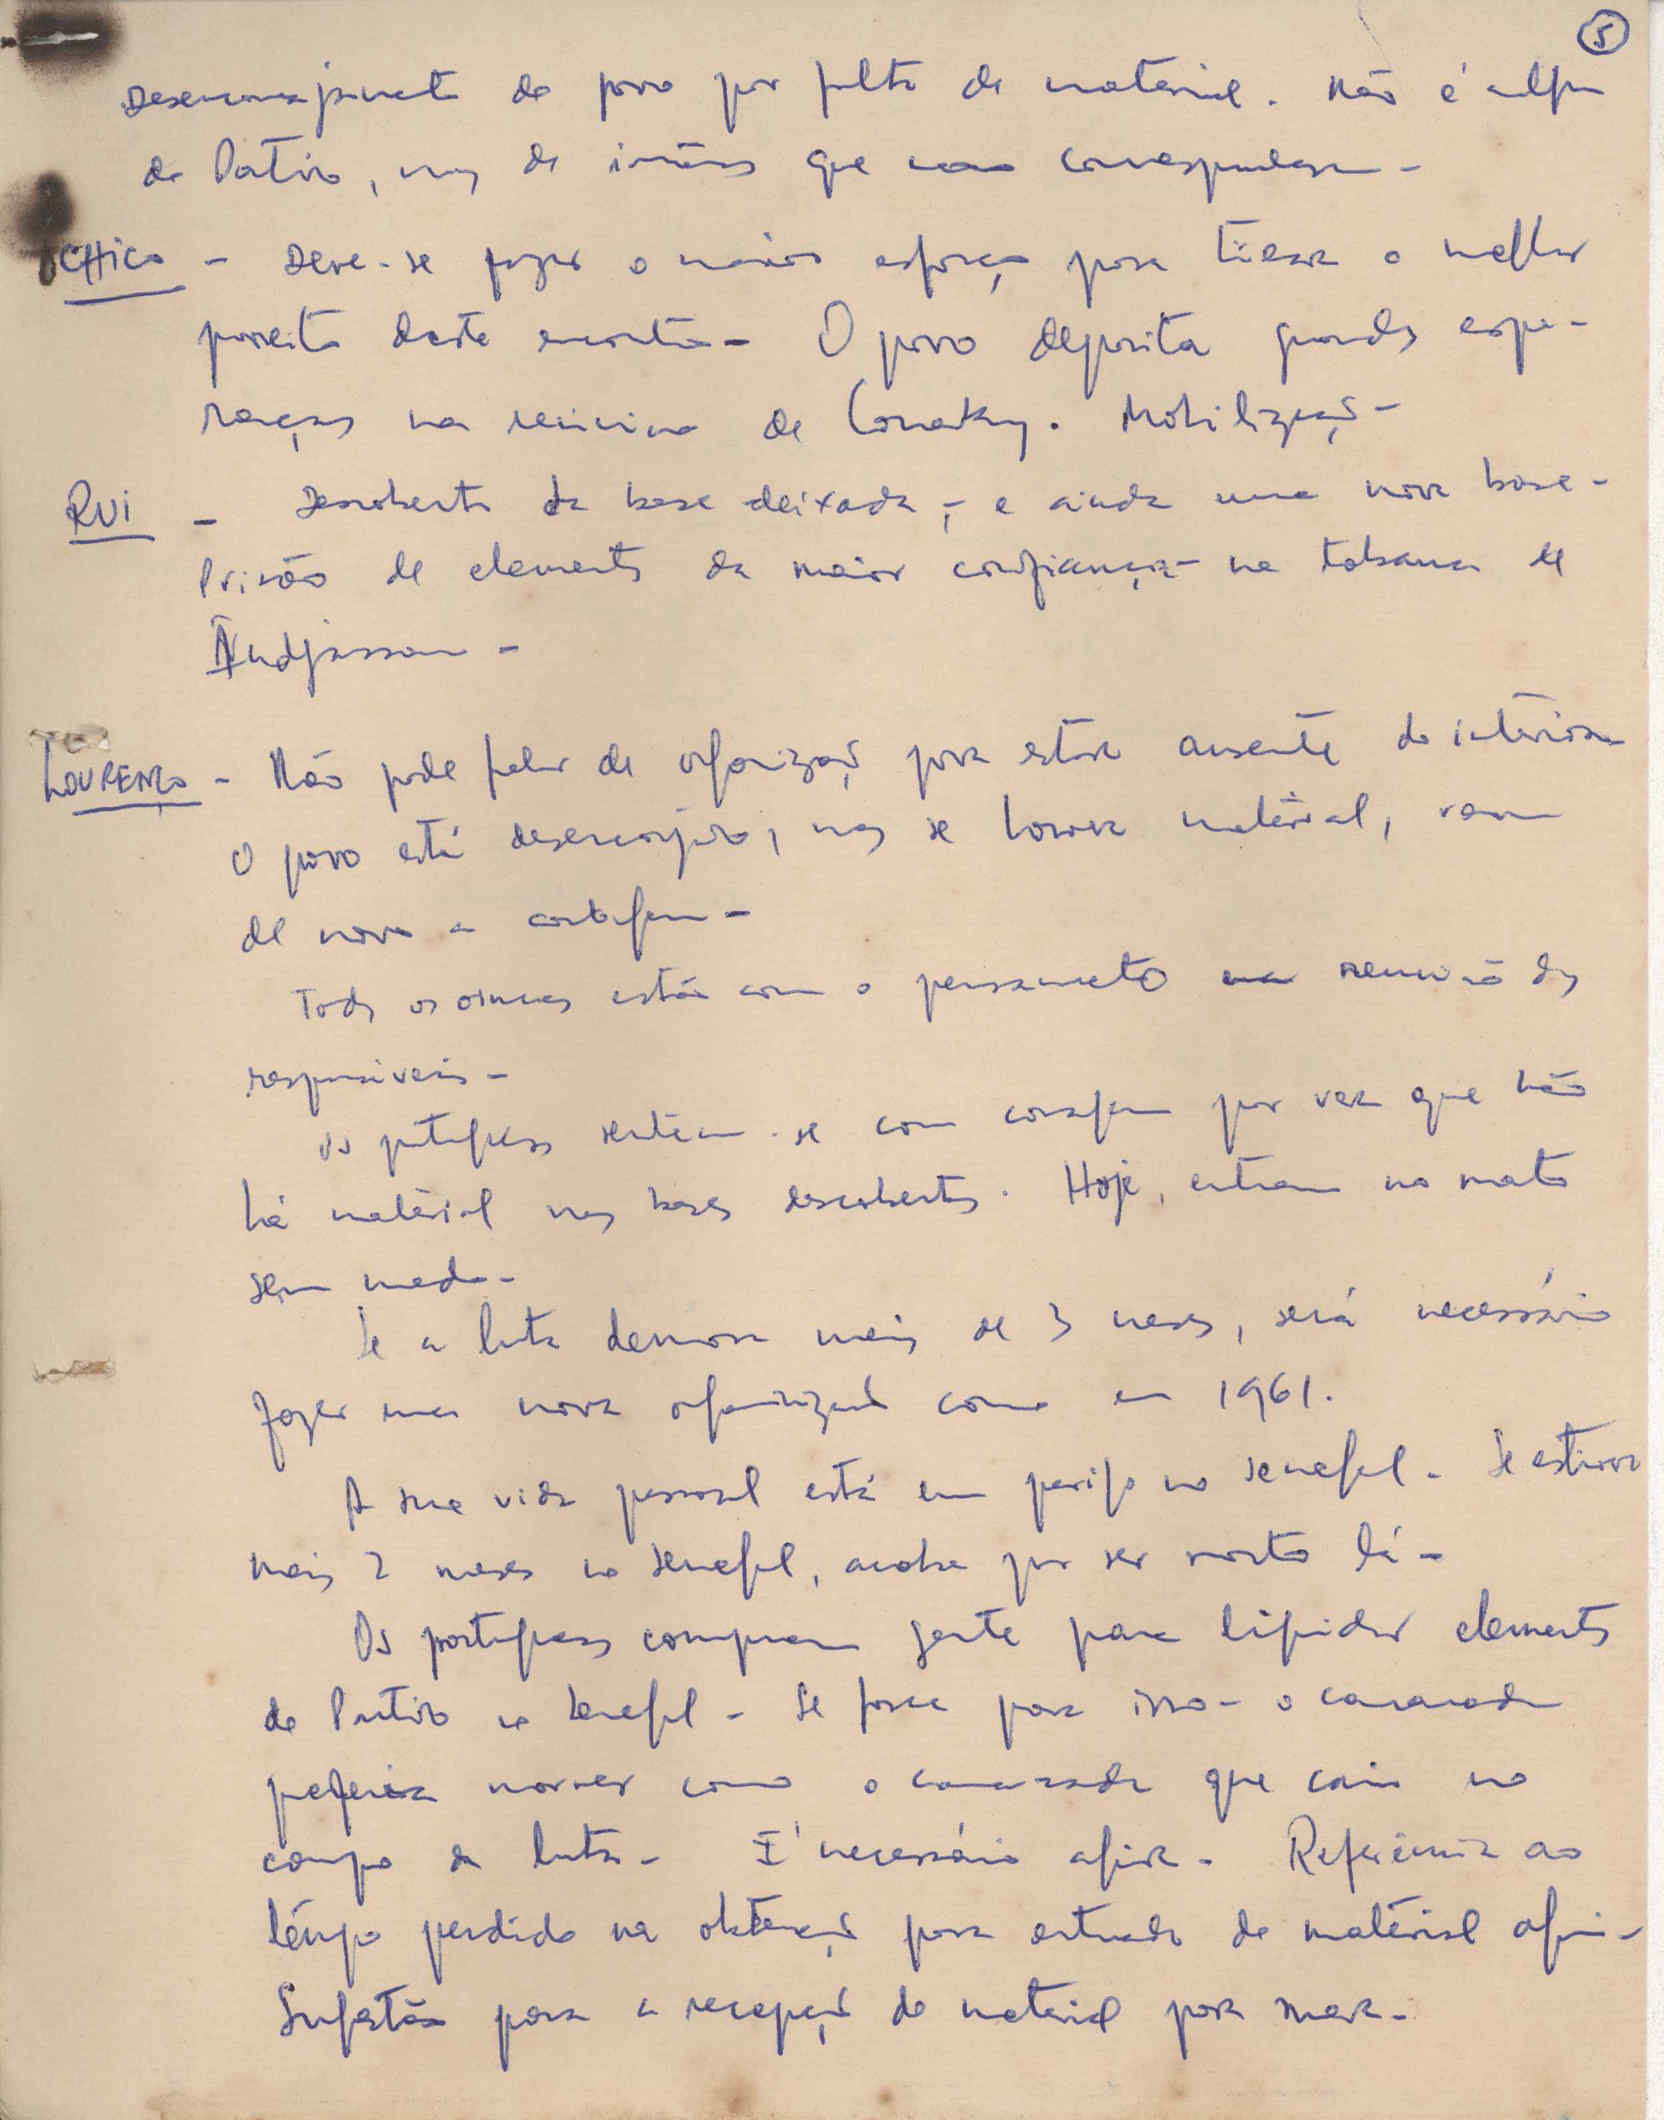 5
Desencorajamento do povo por falta de material. Não é culpa
do Partido, mas de irmãos que não correspondem -
CHICO - Deve-se fazer o maior esforço para tirar o melhor
proveito deste encontro - O povo deposita grandes espe-
ranças na reunião de Conakry. Mobilização -
RUI - Descoberta da base deixada, - e ainda uma nova base -
Prisão de elementos da maior confiança - na tabanca de
Indjassan -
LOURENÇO - Não pode falar de organização para estar ausente do interior
O povo está desencorajado, mas se houver material, vem
de novo a coragem -
Todos os irmãos estão com o pensamento na reunião dos
responsáveis -
Os portugueses sentem-se com coragem por ver que não
há material nas bases descobertas. Hoje, entram no mato
sem medo -
Se a luta demora mais de 3 meses, será necessário
fazer uma nova organização como em 1961.
A sua vida pessoal está em perigo no Senegal - Se estiver
mais 2 meses no Senegal, acaba por ser morto lá -
Os portugueses compram gente para liquidar elementos
do Partido no Senegal - Se fosse para isso - o camarada
preferia morrer como o camarada que caiu no
campo da luta - É necessário agir - Referência ao
tempo perdido na obtenção para entrada do material aqui -
Sugestão para a recepção do material por mar -